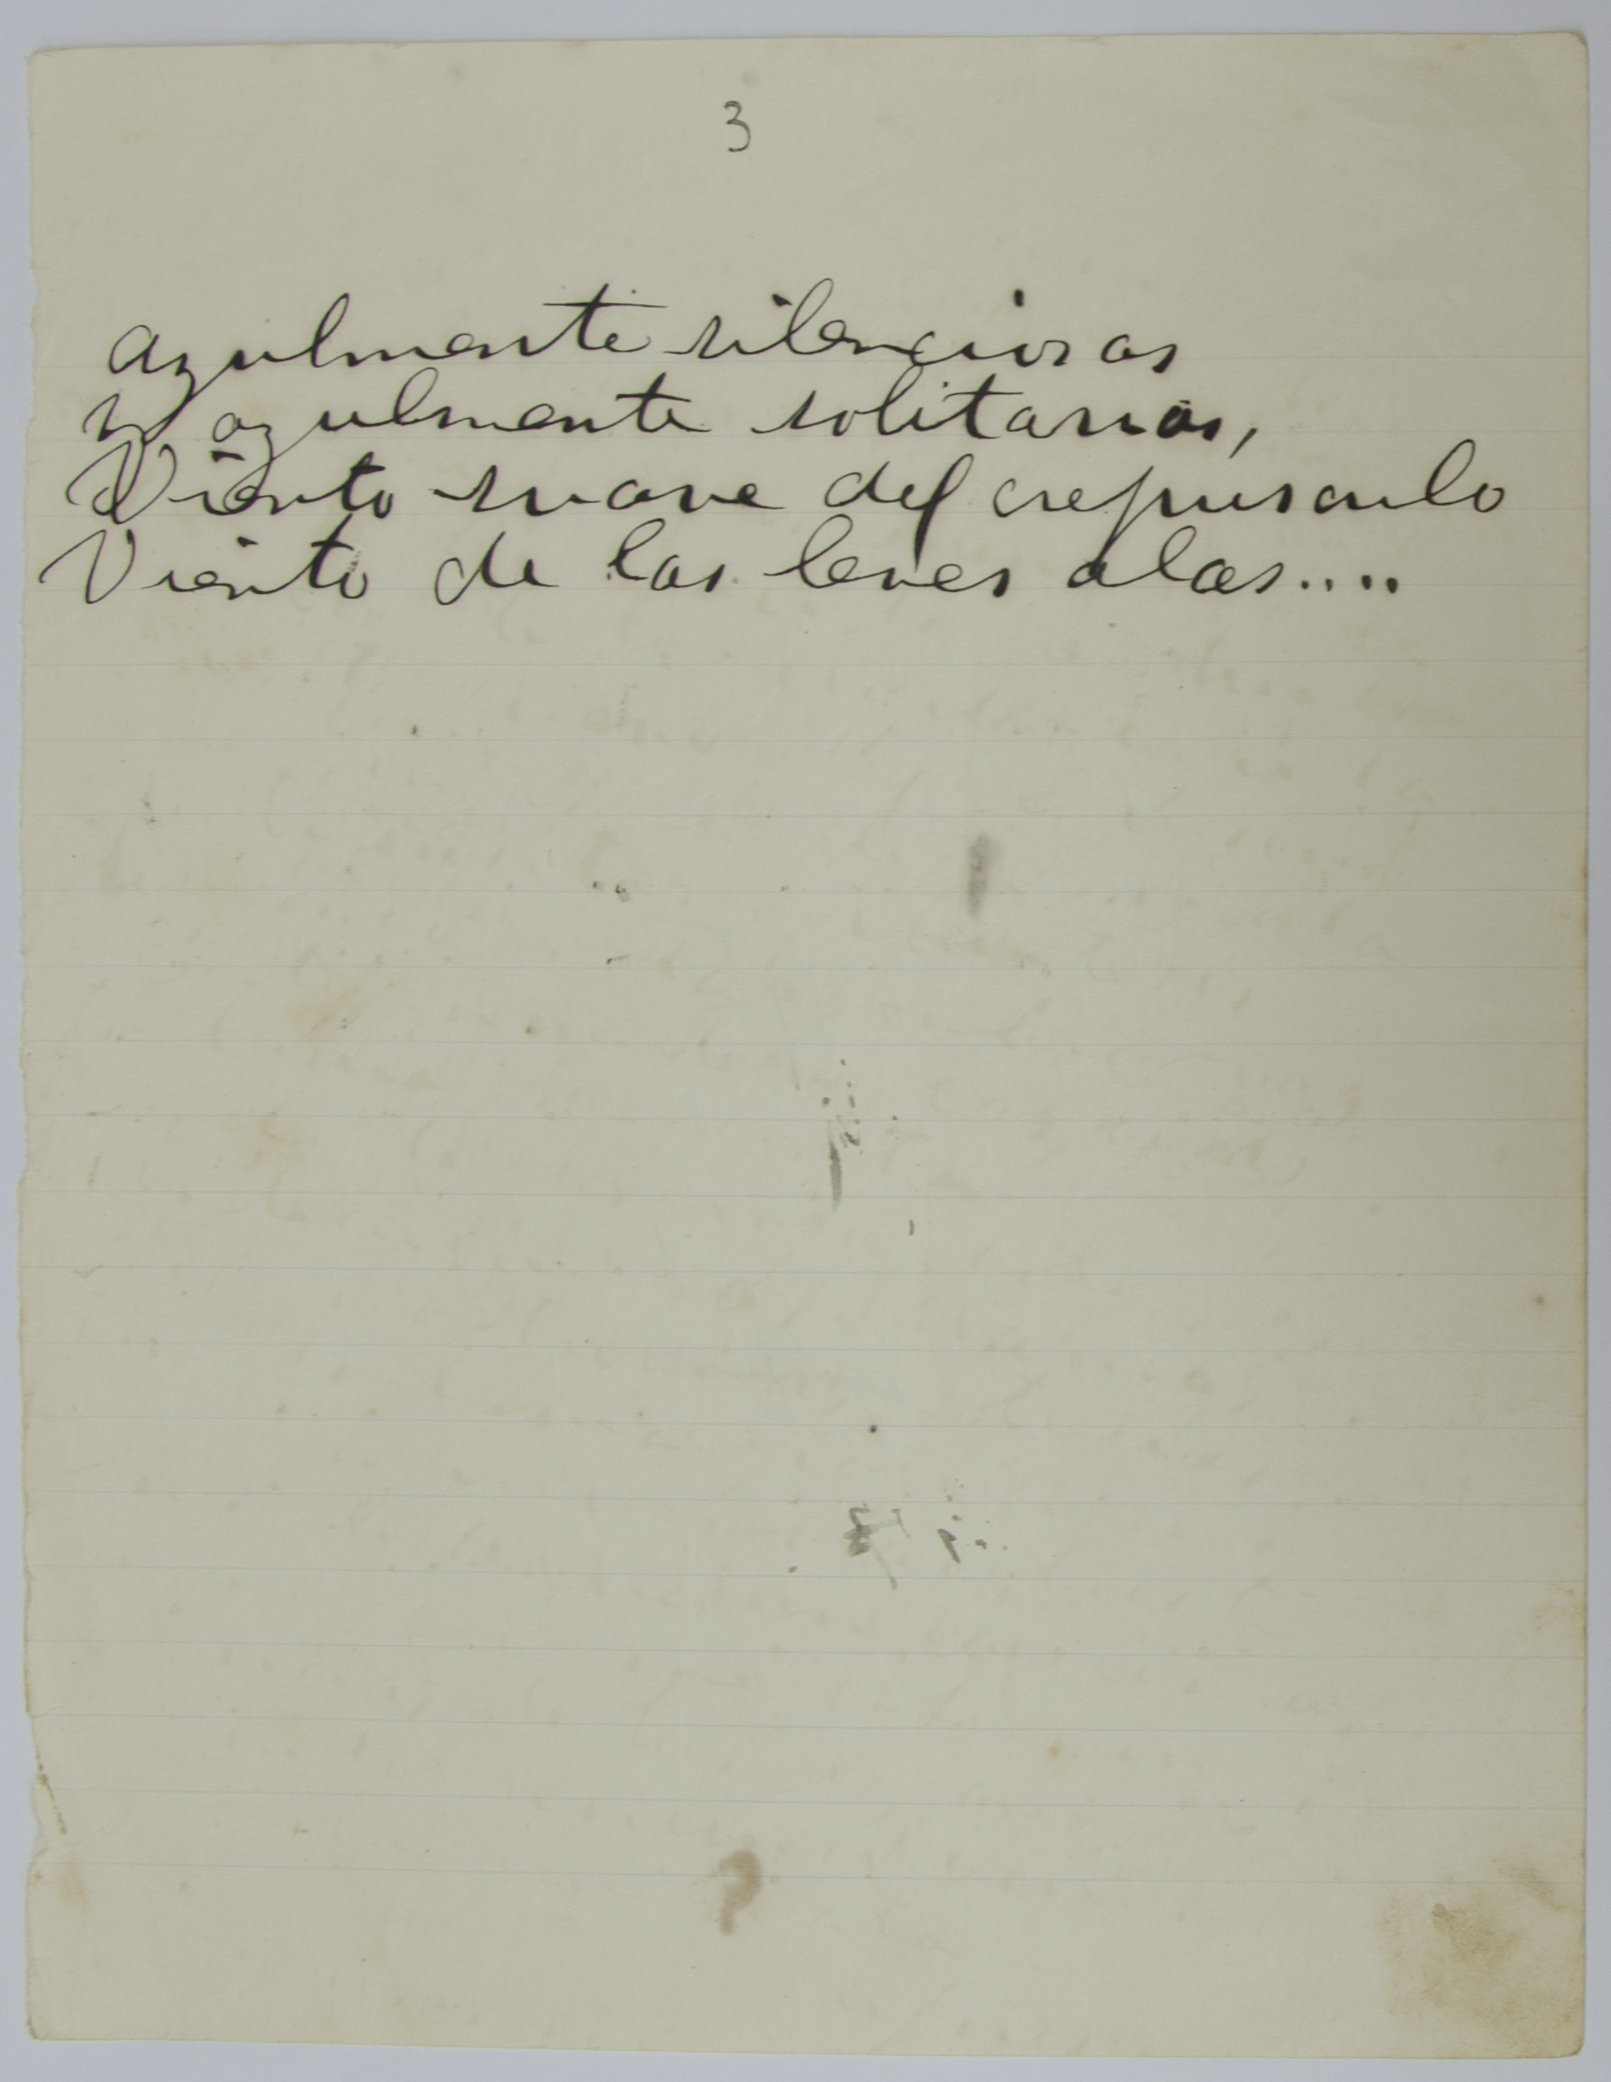 3
azulmente silenciosas
y azulmente solitarias,
Viento suave del crepusculo
Viento de las leves alas....